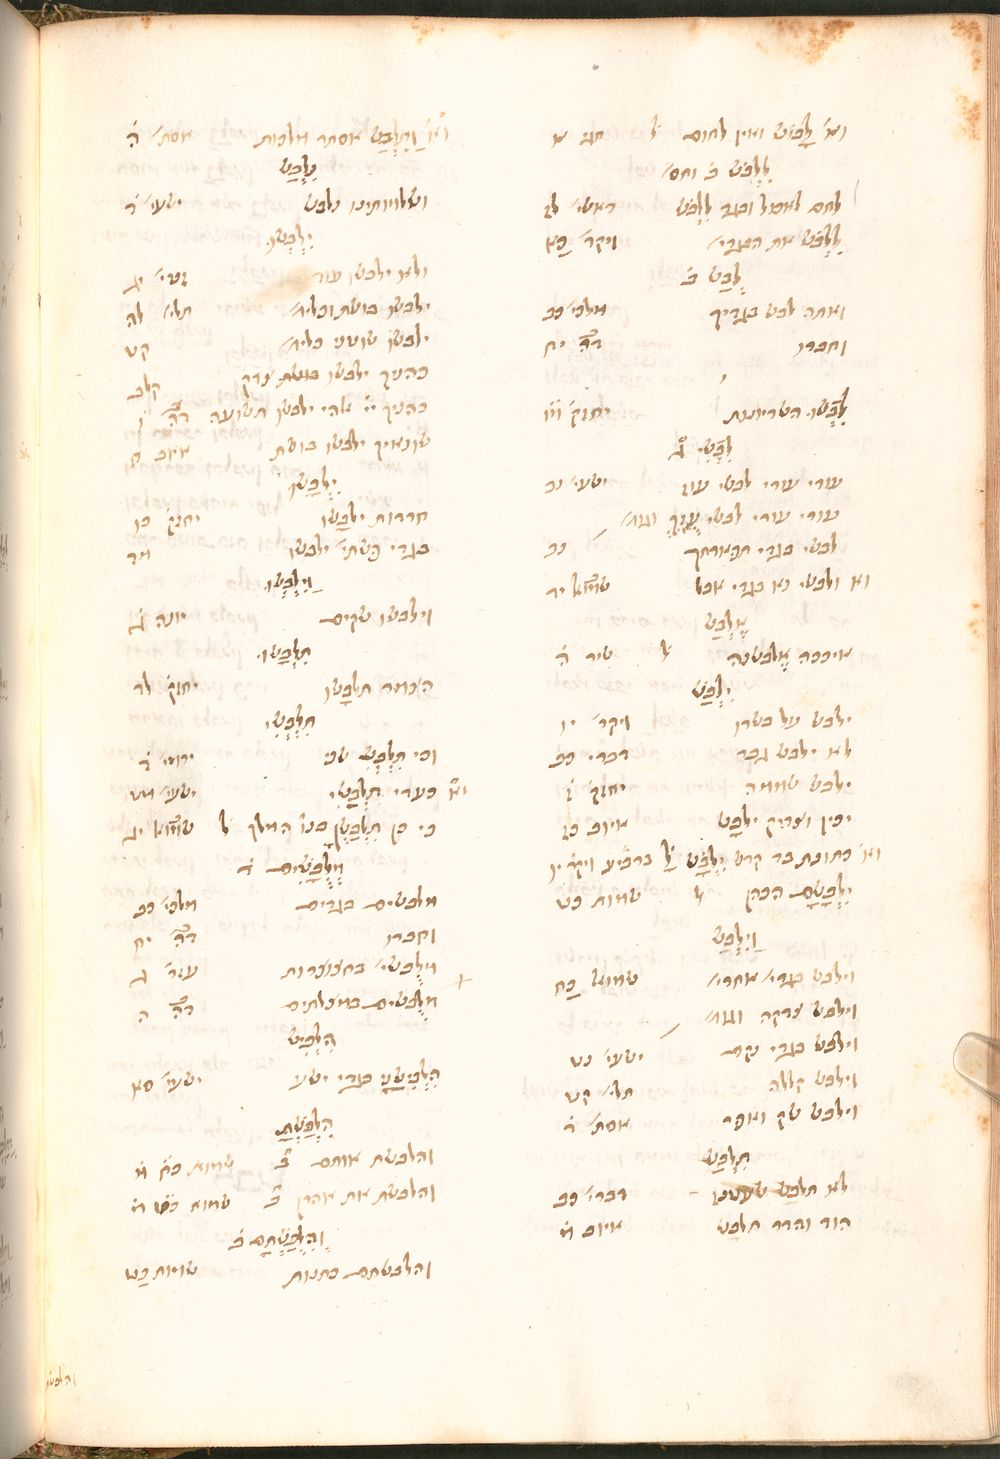 וא׳ לָבוֹשׁ ואין לחום ל׳ חגי א
לִלְבֹּשׁ ב׳ וחס׳
לחם לאכול ובגד לִלְבֹּשׁ ראשי׳
לִלְבֹּשׁ את הבגדי׳ ויקר׳ כא
לְבַשׁ ב׳
ואתה לבש בגדיך מלכי׳ כב
וחברו דה׳ יח
לִבְשׁוּ הסריונות יחזק׳
לִבְשִׁי ג׳
עורי עורי לבשי עוז ישעי׳ נב
עורי עורי לבשי עֻזֵּךְ וגו׳
לבשי בגדי תפארתך נב
וא׳ ולבשי נא בגדי אבל שמואל יד
אֶלְבַּשׁ
איככה אֶלבשנה ל׳ שיר ה׳
יִלְבַּשׁ
ילבש על בשרו ויקר׳ יו
לא ילבש גבר דברי׳ כב
ילבש שממה יחזק׳ ז
יכין וצדיק ילבָּש איוב כז
וא׳ כתונת בד קדש יִלְבָּשׁ ברביע ויקר׳ יו
יִלְבָּשָׁם הכהן ל׳ שמות כט
וַיִּלְבַּשׁ
וילבש בגדי׳ אחרי׳ שמואל כח
וילבש צדקה וגו׳
וילבש בגדי נקם ישעי׳ נט
וילבש קללה תלי׳ קט
וילבש שק ואפר אסת׳ ד׳
תִלְבַּשׁ
לא תלבש שעטנז דברי׳ כב
הוד והדר תלבש איוב מ׳
וא׳ וַתִּלְבַּשׁ אסתר מלכות אסת׳ ה׳
נִלְבַּשׁ
ושמלותינו נלבש ישעי׳ ד׳
יִלְבְּשׁוּ
ולא ילבשו עור
ילבשו בושת וכלי׳ תלי׳ לה
ילבשו שוטני כלי׳ קט
כהניך ילבשו צדק קלב
כהניך יי׳ אהי׳ ילבשו תשועה דה׳ ו
שונאיך ילבשו בושת איוב ח
יִלְבַּשׁוּ
חרדות ילבָּשו יחזק׳ כו
בגדי פשתי׳ ילבשו מד
וַיִּלְבְּשׁוּ
וילבשו שקים יונה ג׳
תִלְבַּשׁוּ
הצמר תלבָּשו יחזק׳ לד
תִלְבְּשִׁי
וכי תִלְבְּשִׁי שני ירמי׳ ד׳
וא׳ כעדי תִלְבָּשִׁי ישעי׳ מט
כי כן תִלְבַּשְׁןָ בנו׳ המלך ל׳ שמואל יג
מְלֻבָּשִׁים ד׳
מלבשים בגדים מלכי׳ כב
וחברו דה׳ יח
מְלֻבָּשי׳ בחצוצרות עזר׳ ג׳
מְלֻבָּשים במצלתים דה׳ ה
הִלְבִּישׁ
הִלְבִּישַׁנִי בגדי ישע ישעי׳ סא
הִלְבַּשְׁתָּ
והלבשת אותם ב׳ שמות כח מ׳
והלבשת את אהרן ב׳ שמות כט מ׳
וְהִלְבַּשְׁתָּם ב׳
והלבשתם כתנות שמות כט
והלבשת